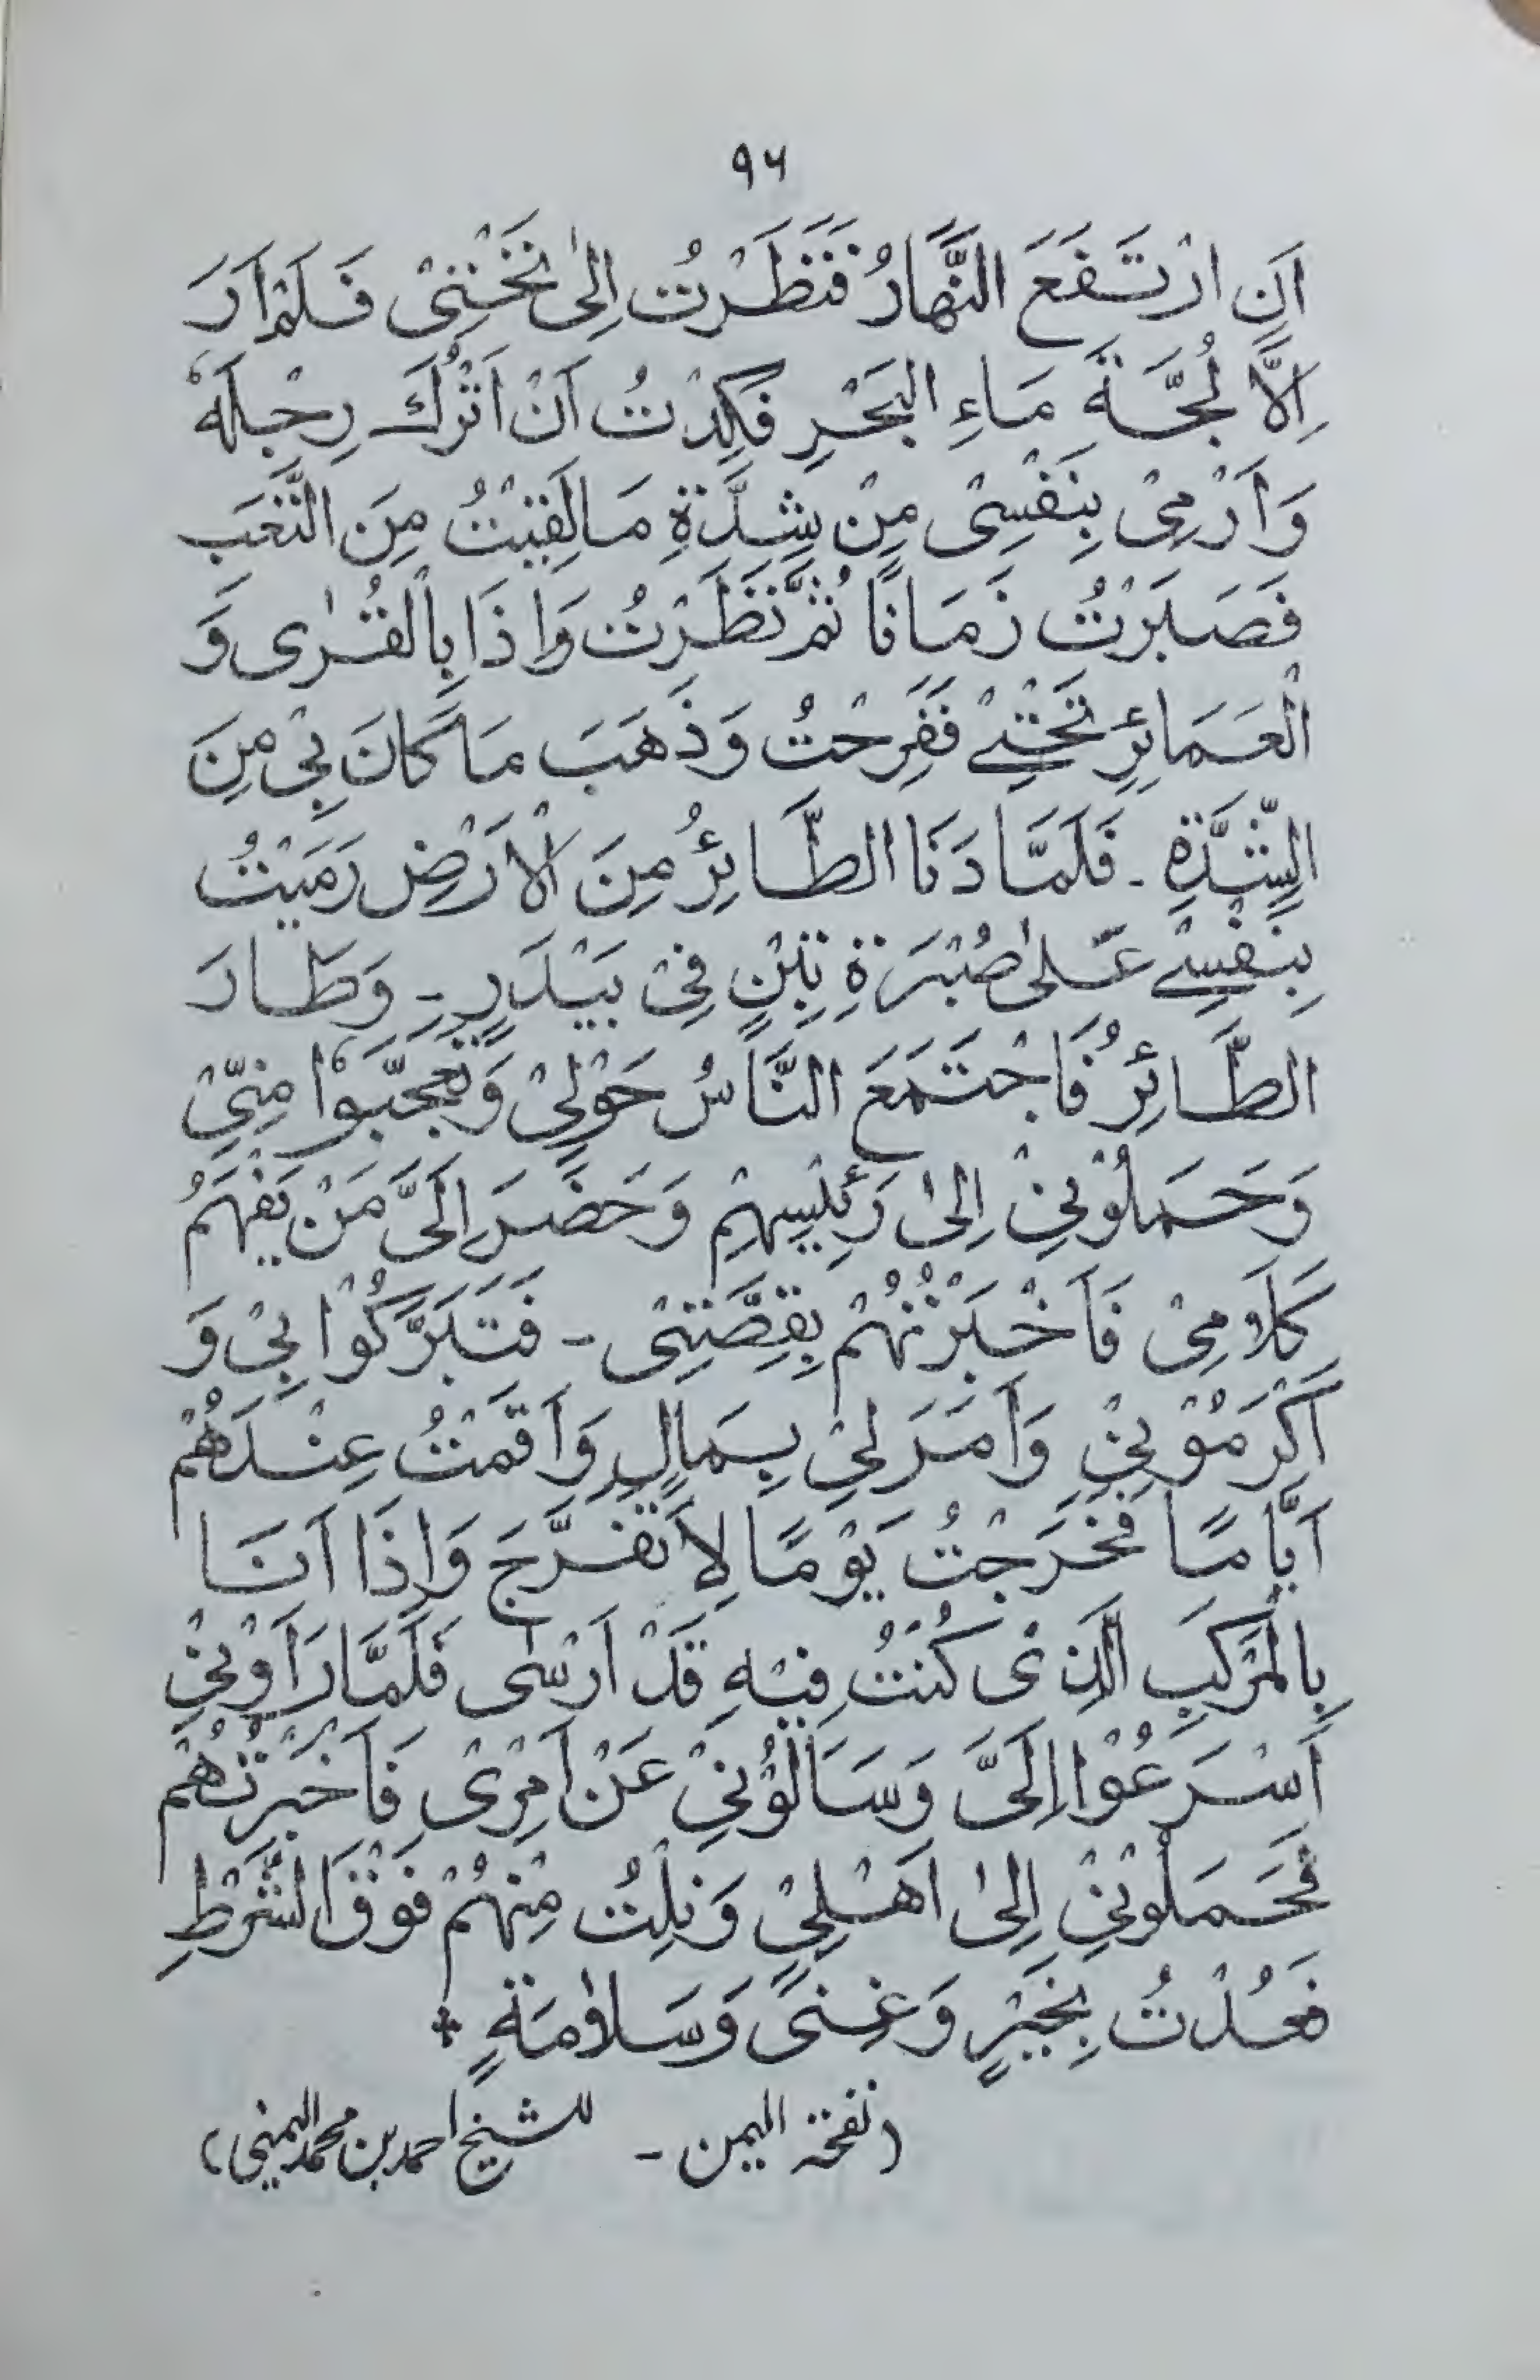 ۹۶
اَنِ ارْتَفَعَ النَّهَارُ فَنَظَرْتُ اِلىٰ تَحْتِىْ فَلَمْ اَرَ
اِلَّا لُجَّةَ مَاءِ الْبَحْرِ فَكِدْتُ اَنْ اَتْرُكَ رِجْلَهٗ
وَاَرْمِىْ بِنَفْسِىْ مِنْ شِدَّةِ مَا لَقِيْتُ مِنَ التَّعَبِ
فَصَبَرْتُ زَمَانًا ثُمَّ نَظَرْتُ وَاِذَا بِالْقُرٰى وَ
الْعَمَائِرِ تَحْتِىْ فَفَرِحْتُ وَذَهَبَ مَا كَانَ بِىْ مِنَ
الشِّدَّةِ ـ فَلَمَّا دَنَا الطَّائِرُ مِنَ الْاَرْضِ رَمَيْتُ
بِنَفْسِىْ عَلىٰ صُبْرَةِ تِبْنٍ فِىْ بَيْدَرٍ ـ وَطَارَ
الطَّائِرُ فَاجْتَمَعَ النَّاسُ حَوْلِىْ وَتَعَجَّبُوْا مِنِّىْ
وَحَمَلُوْنِىْ اِلىٰ رَئِيْسِهِمْ وَحَضَرَ اِلَىَّ مَنْ يَفْهَمُ
كَلَامِىْ فَاَخْبَرْتُهُمْ بِقِصَّتِىْ ـ فَتَبَرَّكُوْا بِىْ وَ
اَكْرَمُوْنِىْ وَاَمَرَ لِىْ بِمَالٍ وَاَقَمْتُ عِنْدَهُمْ
اَيَّامًا فَخَرَجْتُ يَوْمًا لِاَتَفَرَّجَ وَاِذَا اَنَا
بِالْمَرْكَبِ الَّذِىْ كُنْتُ فِيْهِ قَدْ اَرْسٰى فَلَمَّا رَاَوْنِىْ
اَسْرَعُوْا اِلَىَّ وَسَاَلُوْنِىْ عَنْ اَمْرِىْ فَاَخْبَرْتُهُمْ
فَحَمَلُوْنِىْ اِلىٰ اَهْلِىْ وَنِلْتُ مِنْهُمْ فَوْقَ الشَّرْطِ
فَعُدْتُ بِخَيْرٍ وَغِنىً وَسَلَامَةٍ *
(نفحة اليمن ـ للشيخ احمد بن محمد اليمني)